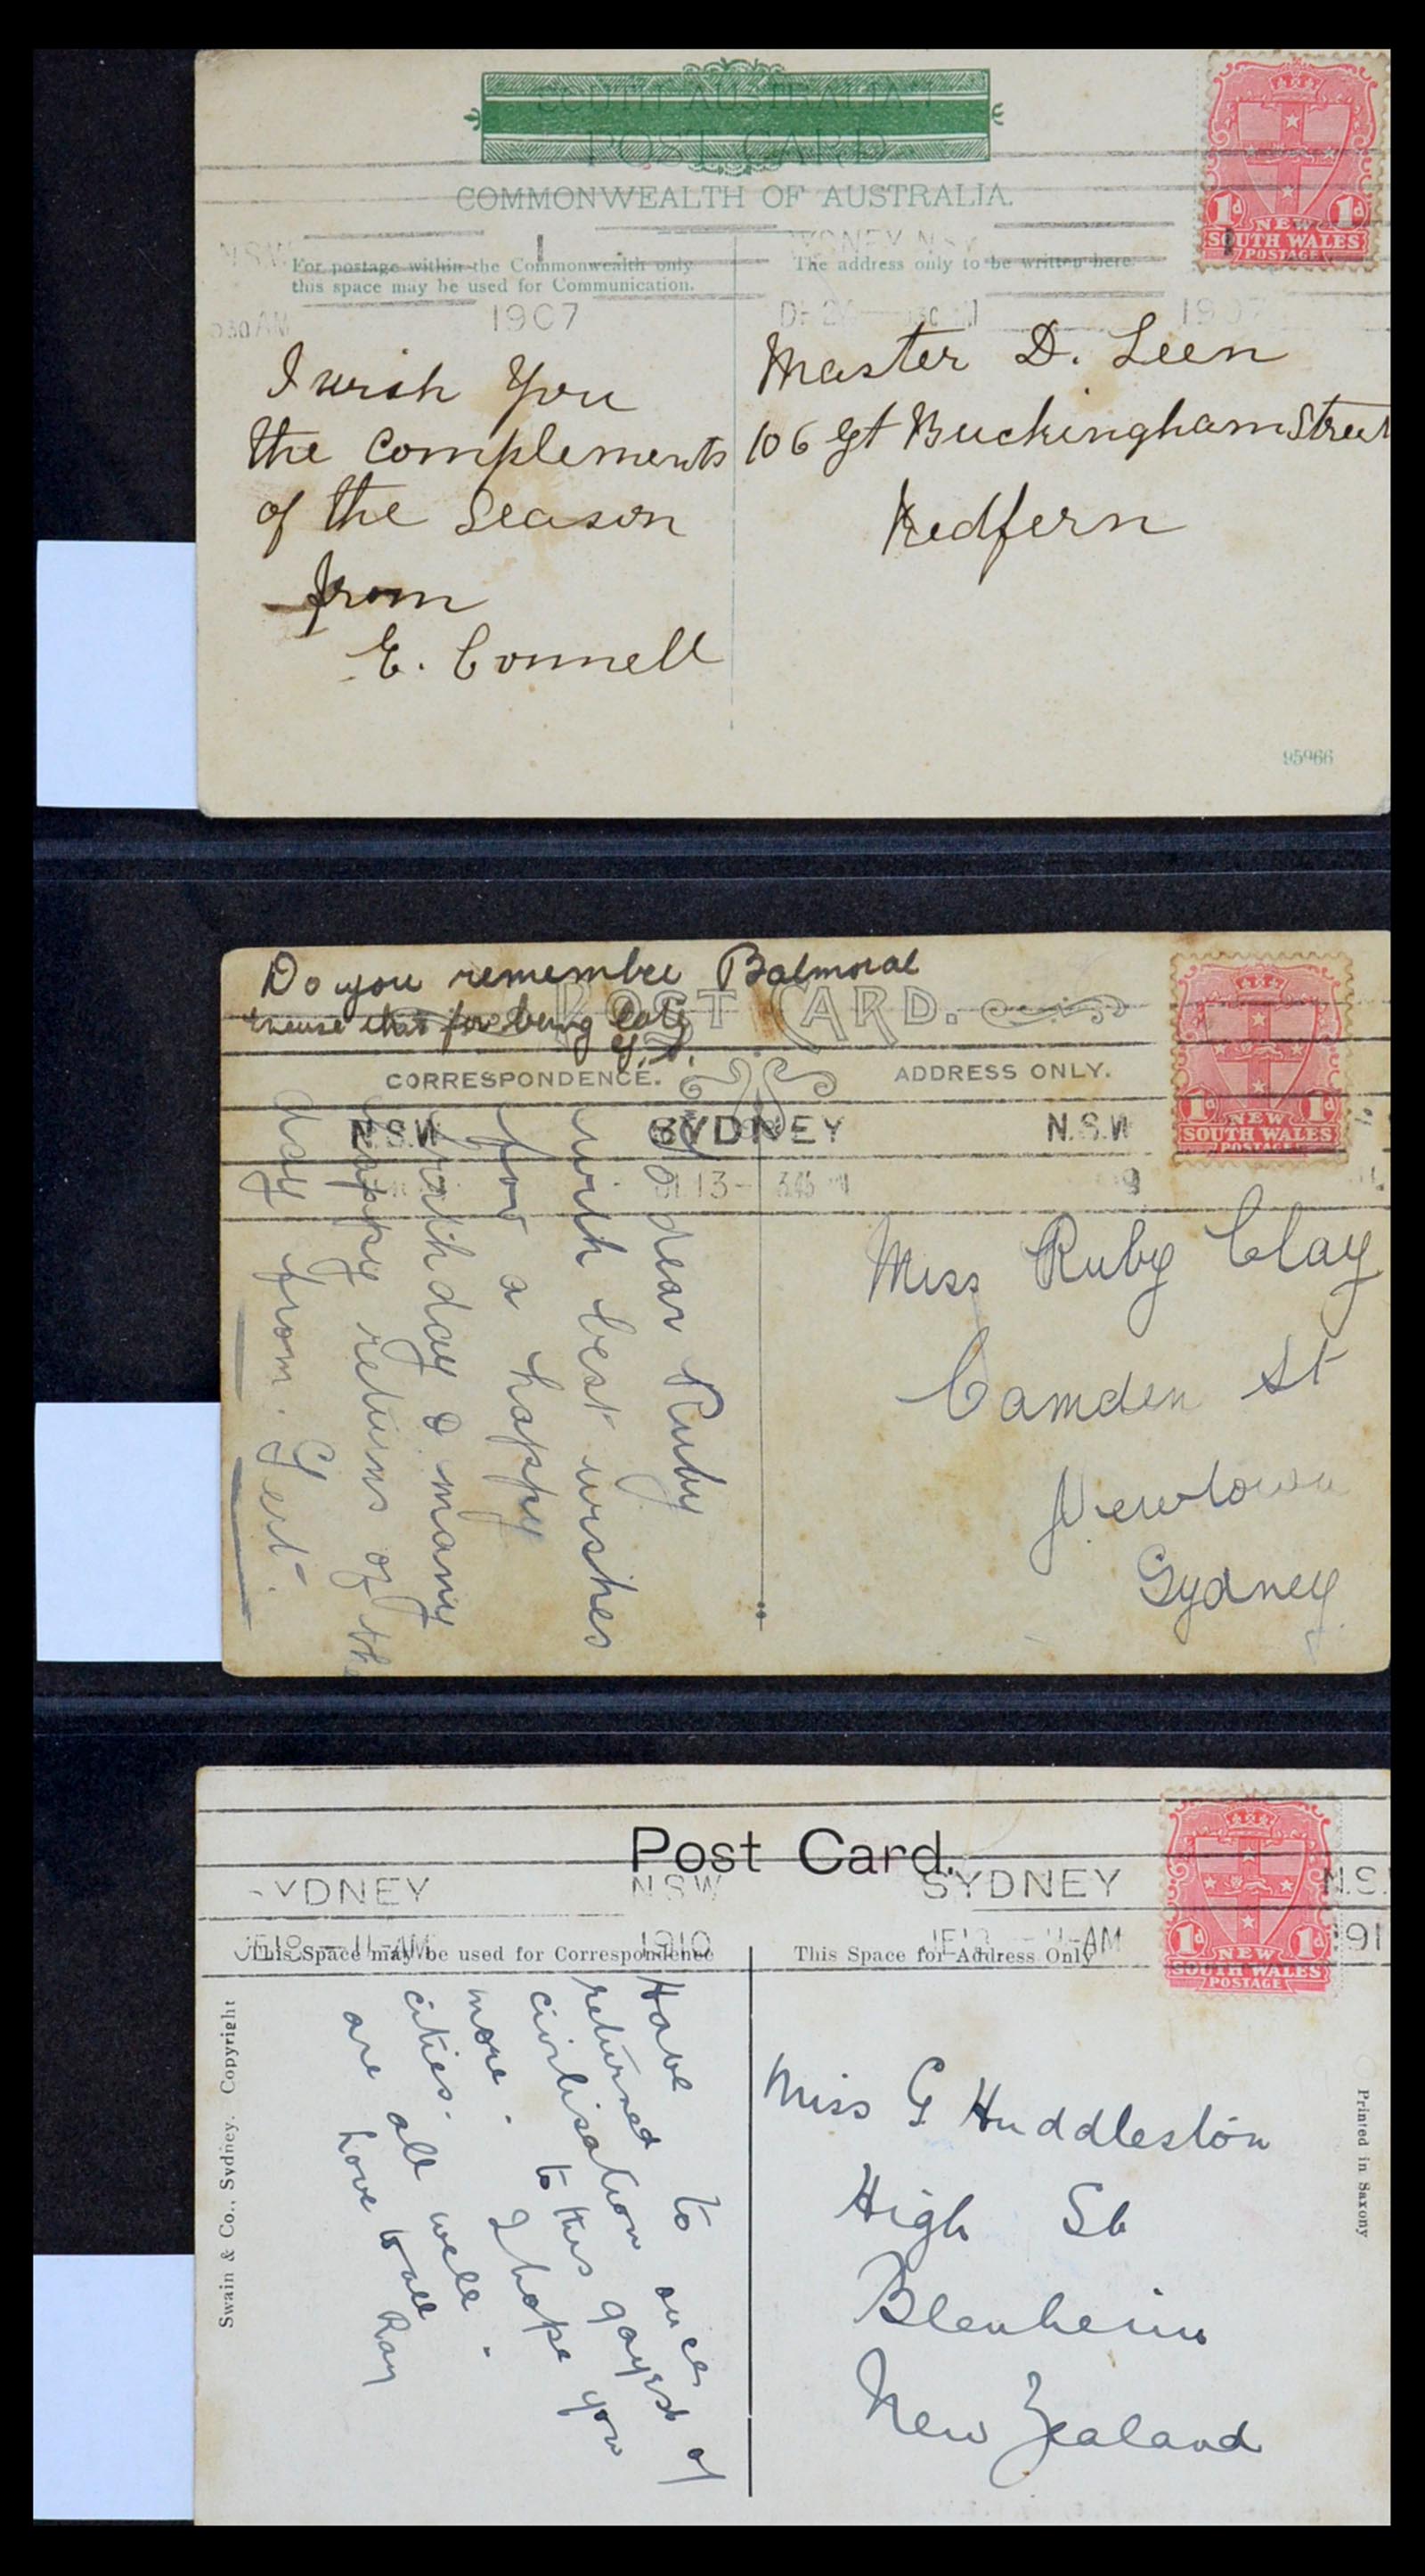 SOUTH AUSTRALIAN
POST CARD
COMMONWEALTH OF AUSTRALIA.
For postage within the Commonwealth only
this space may be used for Communication.
The address only to be written here.
1d NEW 1d
SOUTH WALES
POSTAGE
1907
I wish You
the Complements
of the Season
from
E. Connell
Master D. Leen
106 Gt Buckingham Street
Redfern
95966
Do you remember Balmoral
Excuse this for being late
G. A.
POST CARD.
CORRESPONDENCE.
ADDRESS ONLY.
N.S.W SYDNEY N.S.W
13 - 3.45
1d NEW 1d
SOUTH WALES
POSTAGE
To dear Ruby
with best wishes
for a happy
birthday & many
happy returns of the
day from. Gert.
Miss Ruby Clay
Camden St
Newtown
Sydney
Post Card.
SYDNEY N.S.W SYDNEY N.S.
11-AM 1910 11-AM 191
This Space may be used for Correspondence
This Space for Address Only
1d NEW 1d
SOUTH WALES
POSTAGE
Have to once
returned
civilisation
more. to this gayest of
cities. I hope you
are all well.
Love to all
Ray
Miss G Huddleston
High St
Blenheim
New Zealand
Swain & Co., Sydney. Copyright
Printed in Saxony